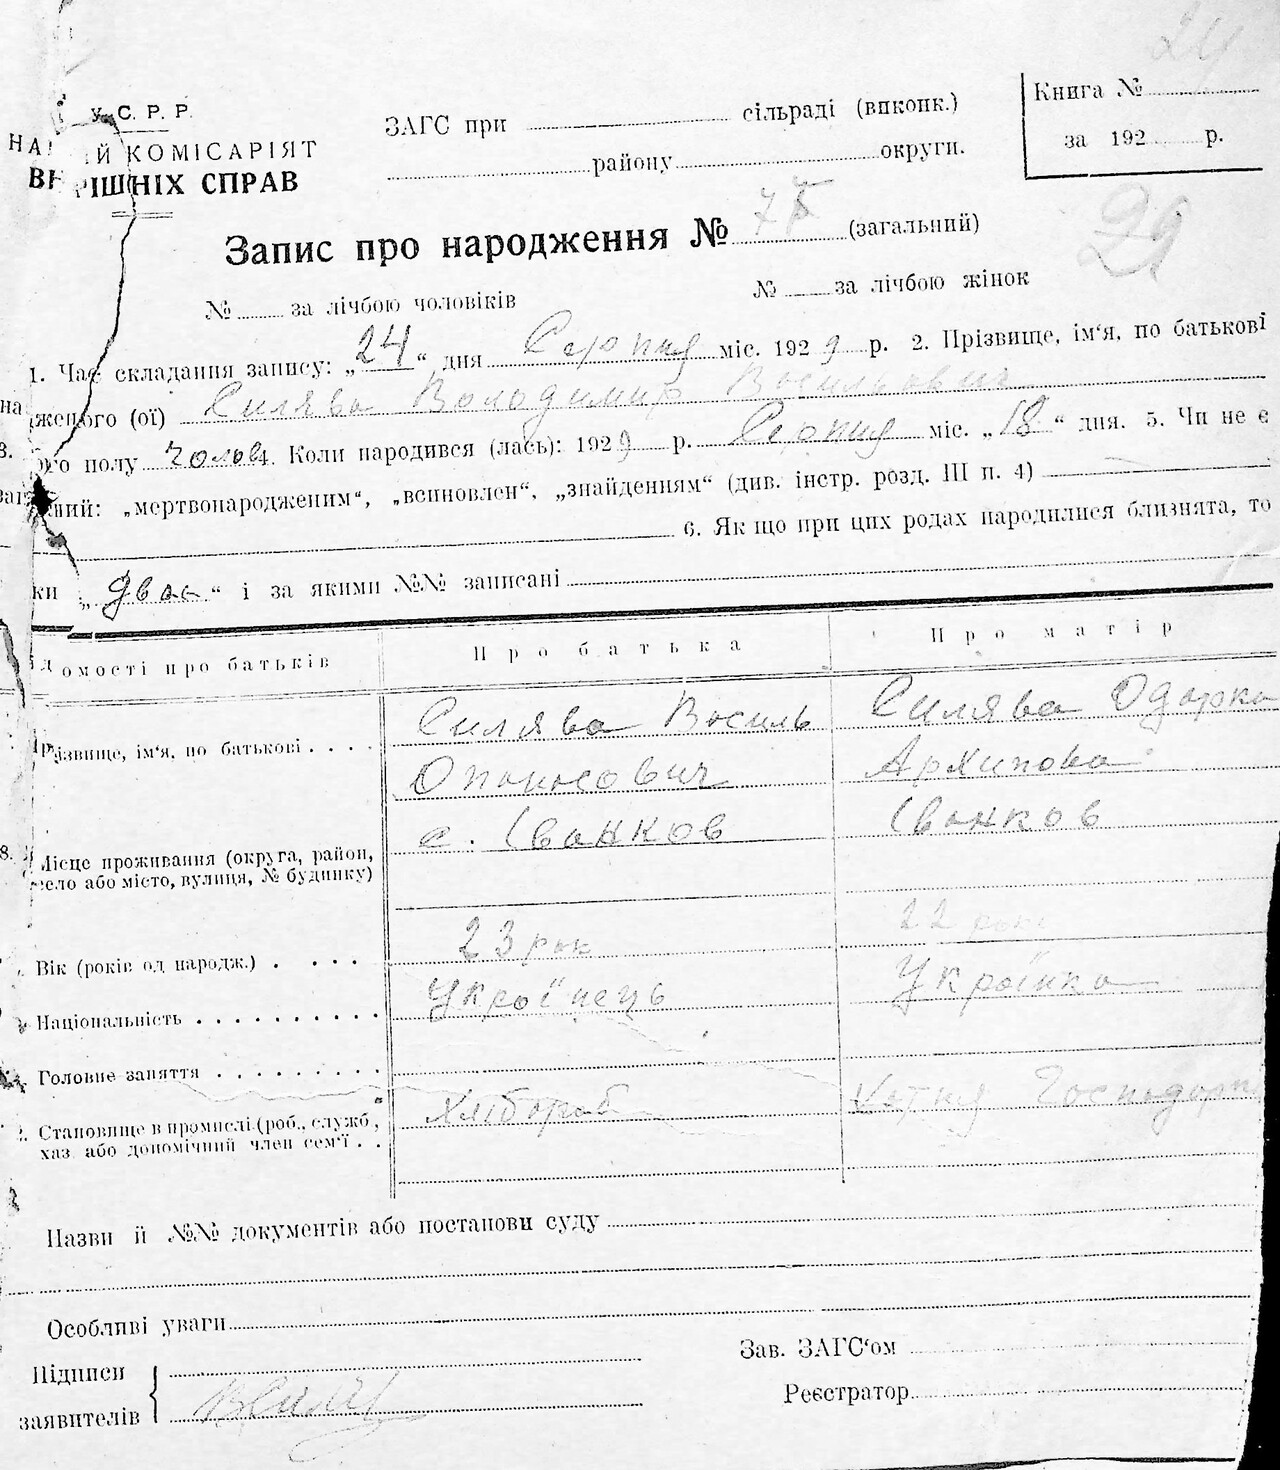 24
У.С.Р.Р.
НА ИЙ КОМІСАРІЯТ
ВН РІШНІХ СПРАВ
ЗАГС при сільраді (виконк.)
району округи.
Книга №
за 192 р.
29
Запис про народження № 75 (загальний)
№ за лічбою чоловіків № за лічбою жінок
1. Час складання запису: „24“ дня Серпня міс. 1929 р. 2. Прізвище, ім‘я, по батькові
на дженого (ої) Силява Володимир Васильович
3. ого полу чолов 4. Коли народився (лась): 1929 р. Серпня міс. „18“ дня. 5. Чи не є
заний: „мертвонародженим“, „всиновлен“, „знайденням“ (див. інстр. розд. III п. 4)
6. Як що при цих родах народилися близнята, то
ки „двоє“ і за якими №№ записані
домості про батьків Про батька Про матір
Прізвище, ім‘я, по батькові . . . . Силява Василь Силява Одарка
Опанасович Архипова
8. Місце проживання (округа, район, с. Іванков Іванков
село або місто, вулиця, № будинку)
Вік (років од народж.) . . . . 23 рок 22 рокі
Національність . . . . . . . . . . Українець Українка
Головне заняття . . . . . . . . .
Становище в промислі (роб., служб., Хлібороб Хатня Господарк
хаз. або допомічний член сем‘ї . .
Назви й №№ документів або постанови суду
Особливі уваги
Підписи
заявителів
Зав. ЗАГС‘ом
Реєстратор